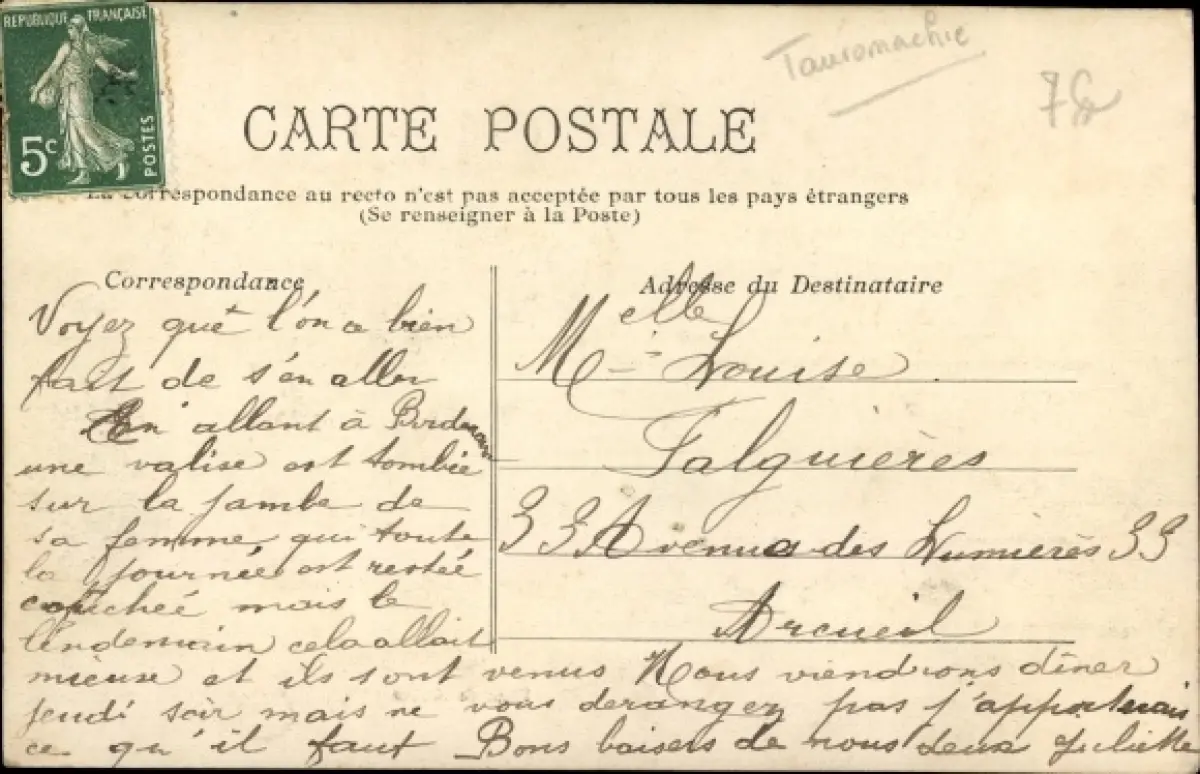 REPUBLIQUE FRANÇAISE
5c
POSTES
Tauromachie
CARTE POSTALE
La correspondance au recto n'est pas acceptée par tous les pays étrangers
(Se renseigner à la Poste)
Correspondance
Voyez que l'on a bien
fait de s'en aller
En allant à Bordeaux
une valise est tombée
sur la jambe de
sa femme qui toute
la journée est restée
couchée mais le
lendemain cela allait
mieux et ils sont venus Nous viendrons dîner
jeudi soir mais ne vous deranger pas j'apporterais
ce qu'il faut Bons baisers de nous deux Juliette
Adresse du Destinataire
Melle Louise
Falguières
33 Avenue des Lumières 33
Arcueil